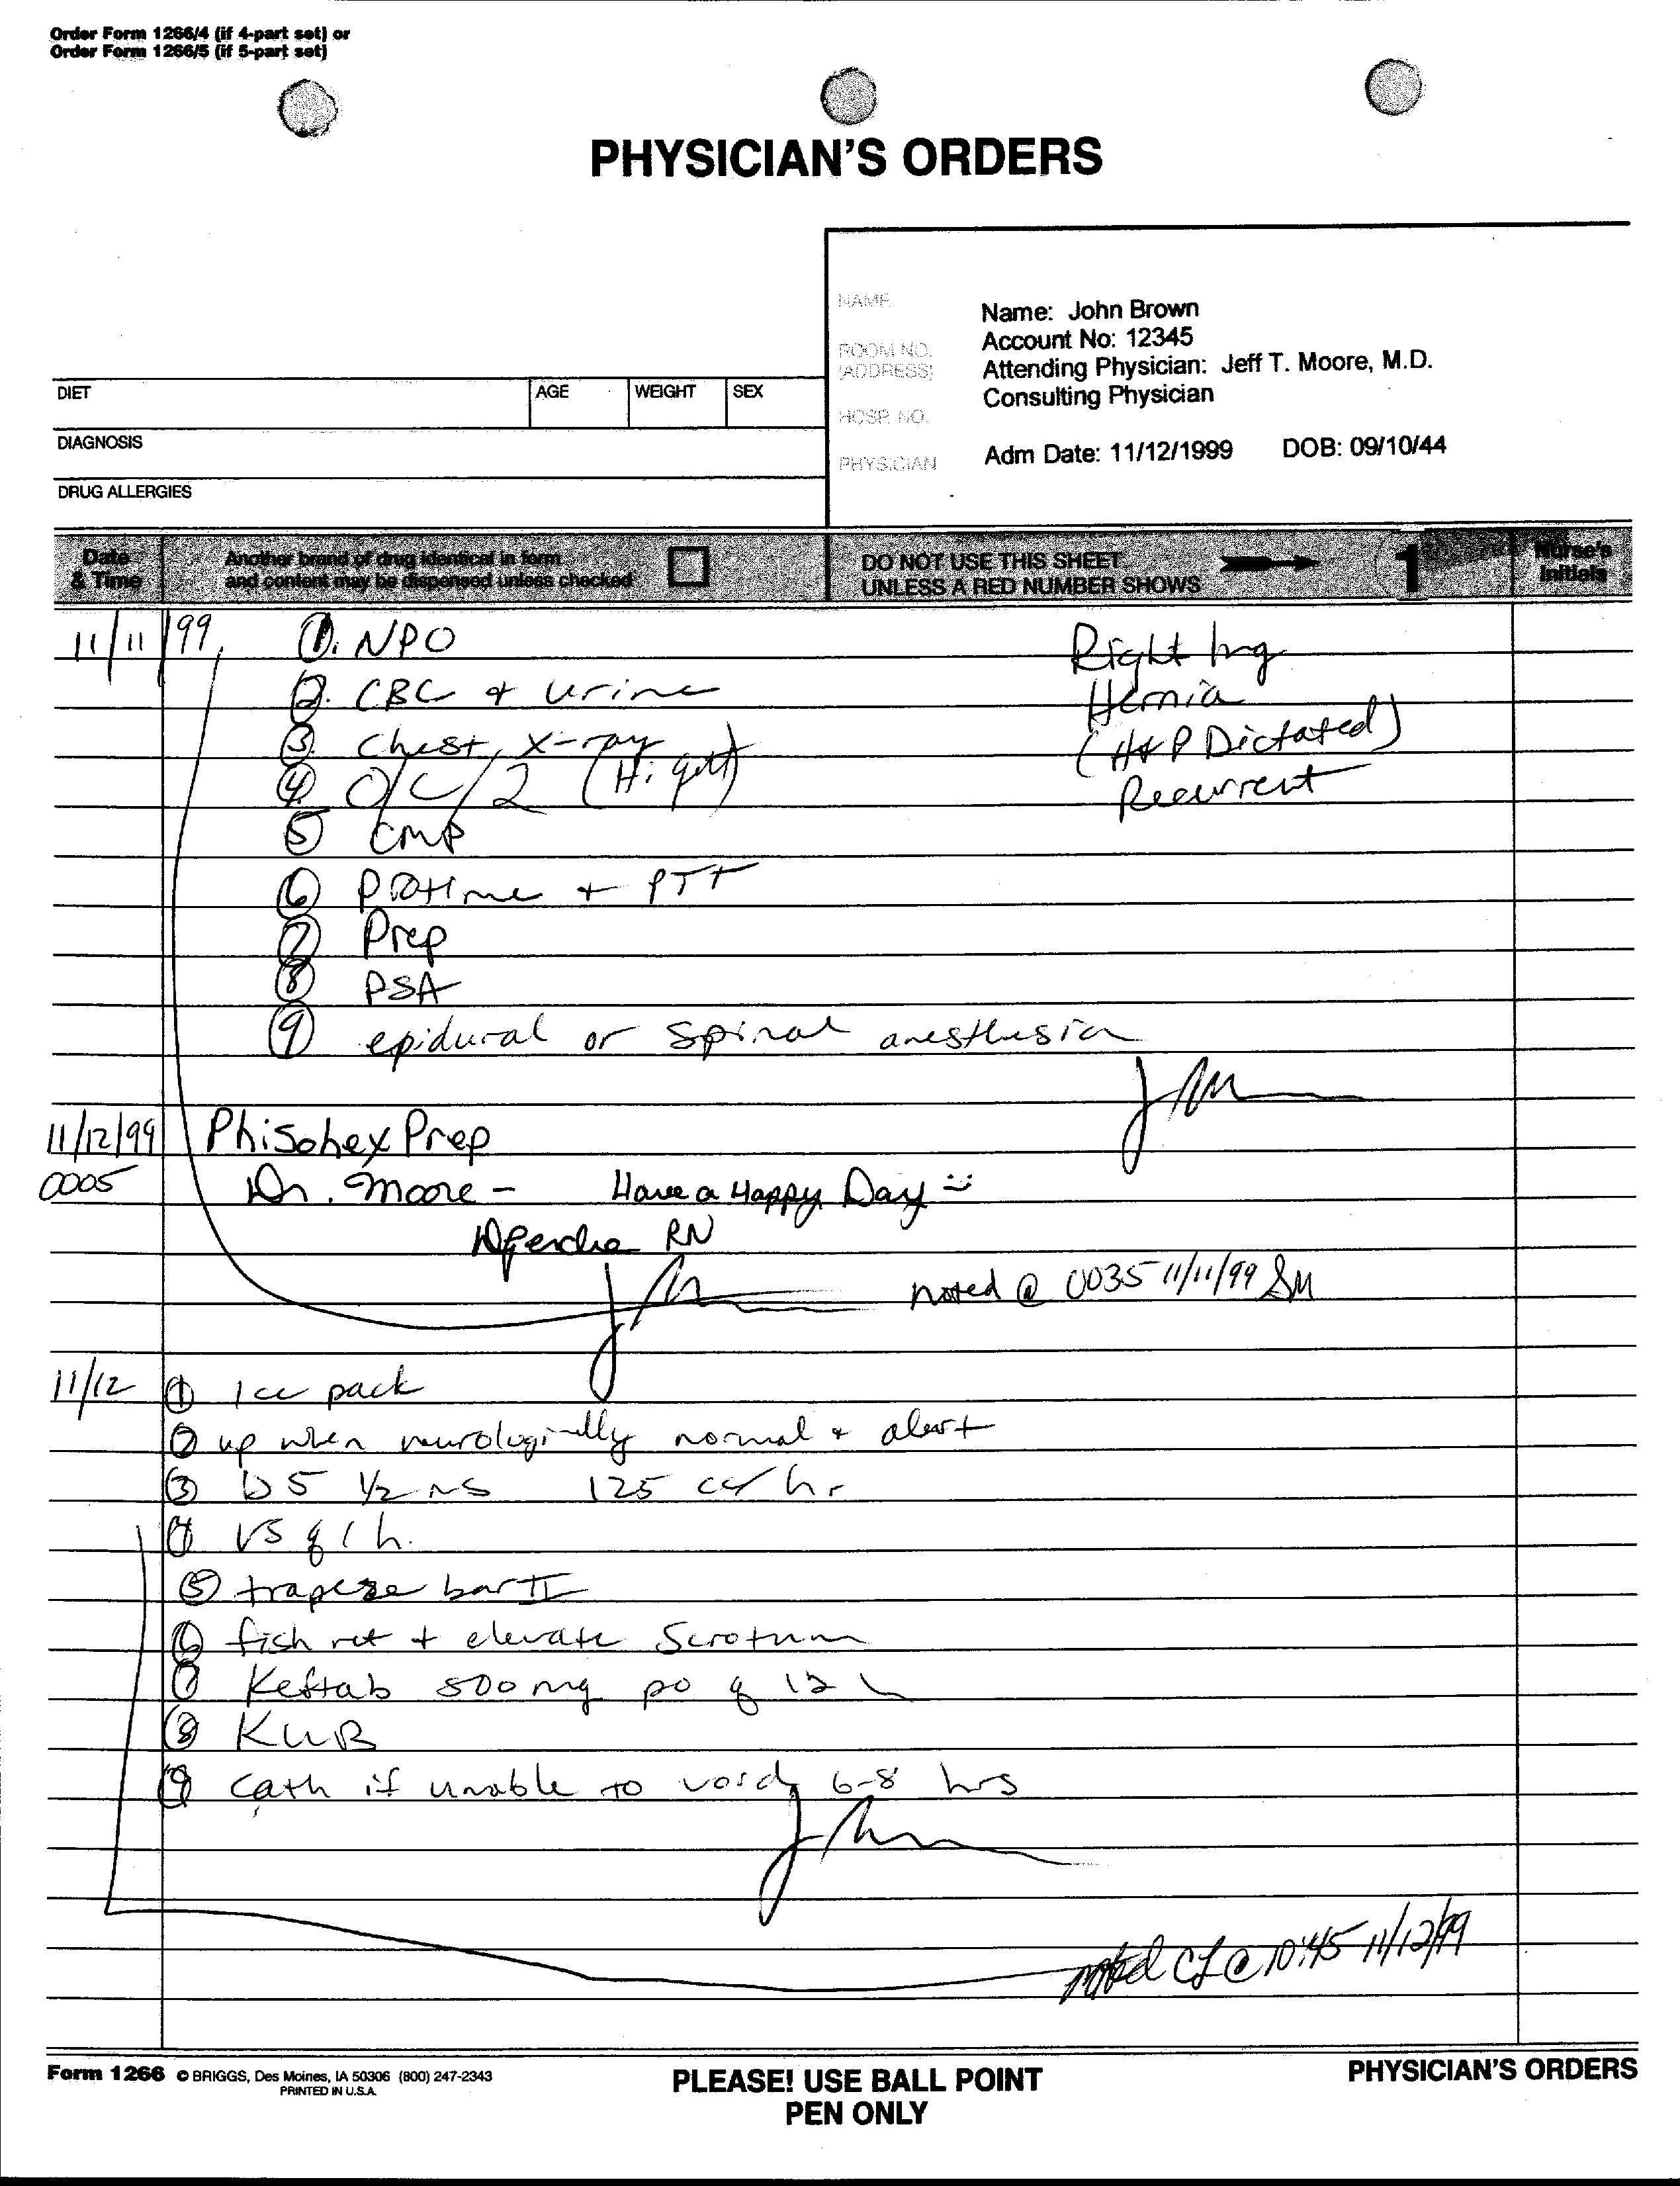 Order Form 1266/4 (if 4-part set) or
Order Form 1266/5 (if 5-part set)
PHYSICIAN'S ORDERS
NAME
Name: John Brown
Account No: 12345
ROOM NO.
(ADDRESS)
Attending Physician: Jeff T. Moore, M.D.
Consulting Physician
HOSP. NO.
PHYSICIAN
Adm Date: 11/12/1999 DOB: 09/10/44
DIET AGE WEIGHT SEX
DIAGNOSIS
DRUG ALLERGIES
Date
& Time
Another brand of drug identical in form
and content may be dispensed unless checked
DO NOT USE THIS SHEET
UNLESS A RED NUMBER SHOWS
1
Nurse's
Initials
11/11/99 1. NPO Right Ing
2. CBC + urine Hernia
3. Chest, X-ray (H&P Dictated)
4 O/C/2 Recurrent
5 CMP
6 Protime + PTT
7 Prep
8 PSA
9 epidural or spinal anesthesia
JM
11/12/99 Phisohex Prep
0005 Dr. Moore - Have a Happy Day
RN
JM noted @ 0035 11/11/99 SM
11/12 1 Ice pack
2 up when neurologically normal + alert
3 D5 1/2 NS 125 cc/hr
4 VS q 1 h.
5 trapeze bar
6 fish net + elevate Scrotum
7 Keftab 500 mg po q 12 h
8 KUB
9 Cath if unable to void 6-8 hrs
JM
noted CL @ 10:45 11/12/99
Form 1266 © BRIGGS, Des Moines, IA 50306 (800) 247-2343
PRINTED IN U.S.A.
PLEASE! USE BALL POINT
PEN ONLY
PHYSICIAN'S ORDERS